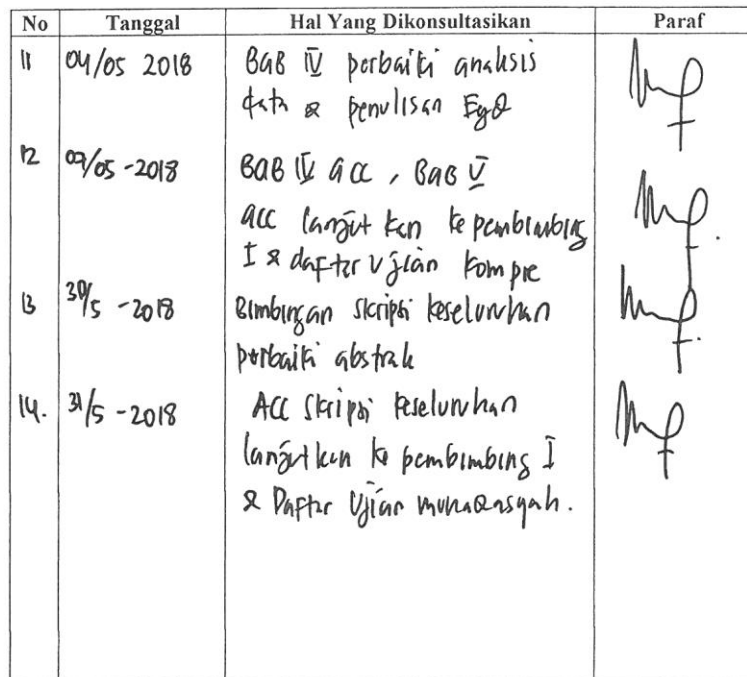 No Tanggal Hal Yang Dikonsultasikan Paraf
11 04/05 2018 BAB IV perbaiki analisis
data & penulisan EyD
12 09/05 -2018 BAB IV acc, BAB V
acc lanjutkan ke pembimbing
I & daftar Ujian Kompre
13 30/5 -2018 Bimbingan skripsi keseluruhan
perbaiki abstrak
14. 31/5 -2018 Acc Skripsi keseluruhan
lanjutkan ke pembimbing I
& Daftar Ujian munaqasyah.